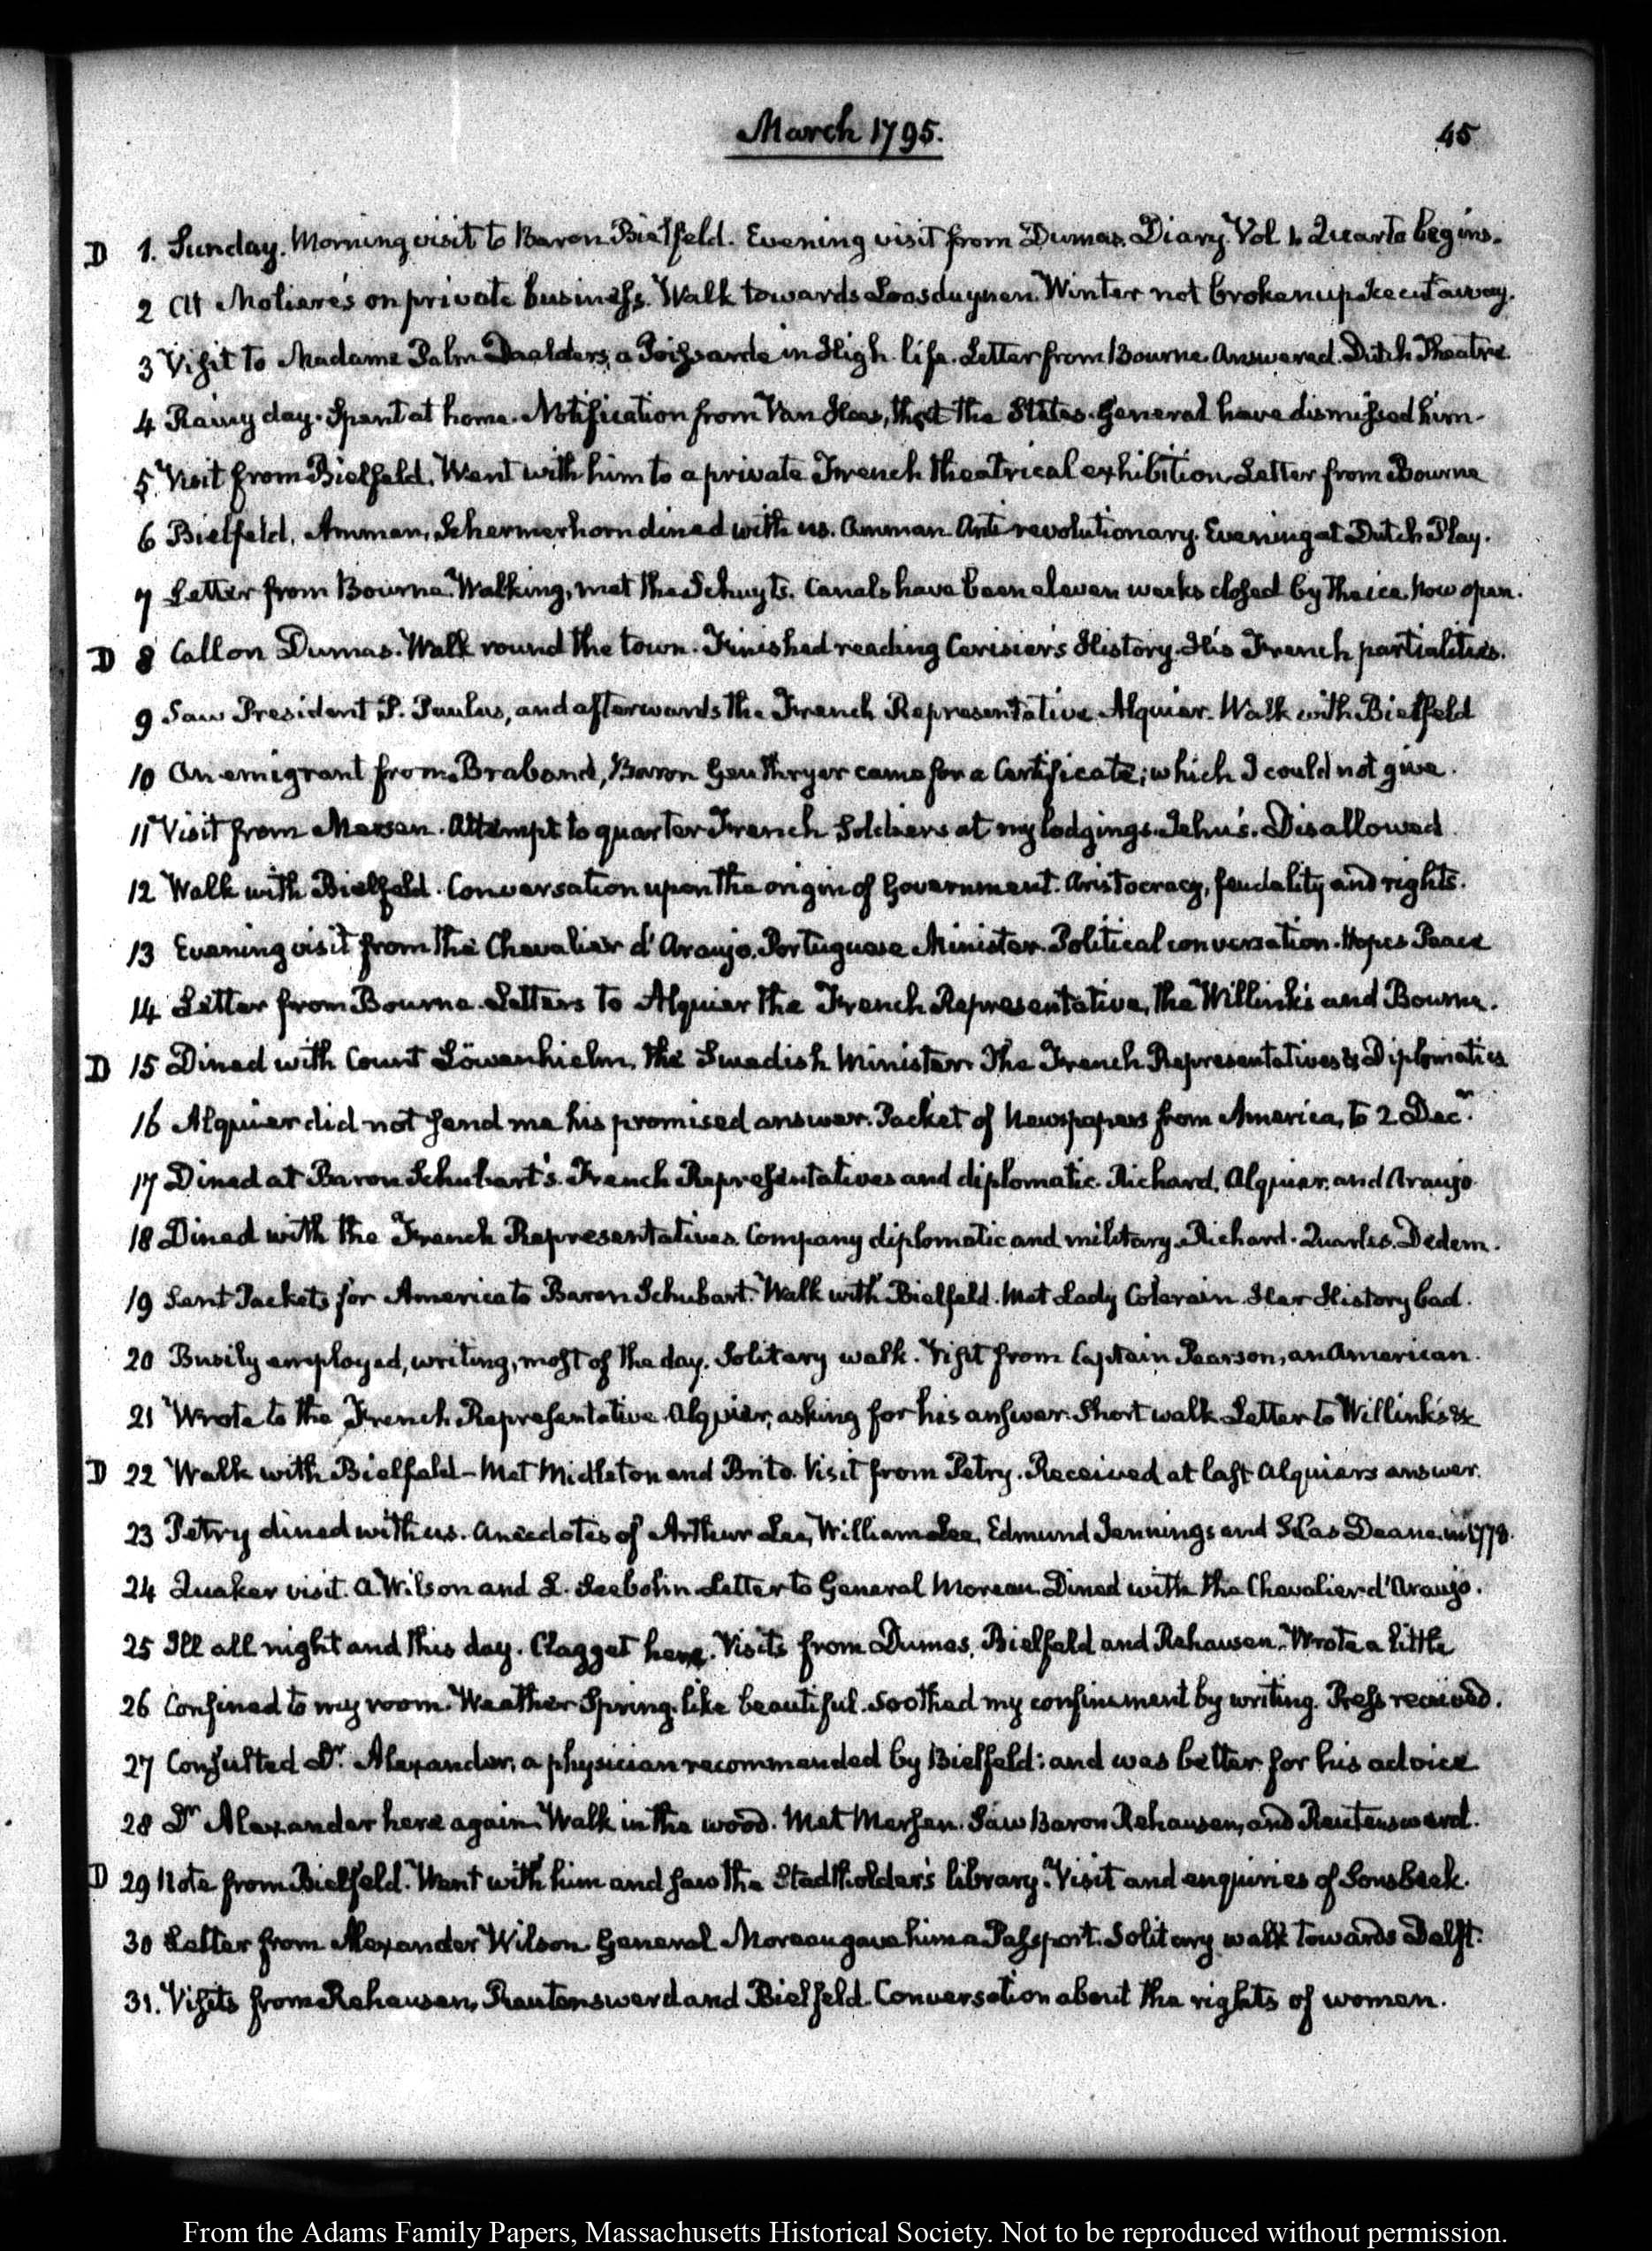 March 1795.
45
D 1. Sunday. Morning visit to Baron Bielfeld. Evening visit from Dumas. Diary. Vol 1. Quarto begins.
2 At Moliere's on private business. Walk towards Loosduynen. Winter not broken up. Ice cut away.
3 Visit to Madame Palm Daelders, a Poissarde in High life. Letter from Bourne. Answered. Dutch Theatre
4 Rainy day. Spent at home. Notification from Van Hees, that the States-General have dismissed him.
5. Visit from Bielfeld. Went with him to a private French theatrical exhibition. Letter from Bourne
6 Bielfeld, Amman, Schermerhorn dined with us. Amman Anti revolutionary. Evening at Dutch Play.
7 Letter from Bourne. Walking, met the Schuyts. Canals have been eleven weeks closed by the ice, now open.
D 8 Call on Dumas. Walk round the town. Finished reading Cerisier's History. His French partialities.
9 Saw President P. Paulus, and afterwards the French Representative Alquier. Walk with Bielfeld
10 An emigrant from Braband, Baron came for a Certificate; which I could not give.
11 Visit from Mersen. Attempt to quarter French Soldiers at my lodgings. Jehu's. Disallowed.
12 Walk with Bielfeld. Conversation upon the origin of Government. Aristocracy, feudality and rights.
13 Evening visit from the Chevalier d'Araujo. Portuguese Minister. Political conversation. Hopes Peace
14 Letter from Bourne. Letters to Alquier the French Representative, the Willink's and Bourne.
D 15 Dined with Count Löwenhielm, the Swedish Minister. The French Representatives & Diplomatics
16 Alquier did not send me his promised answer. Packet of Newspapers from America, to 2. Decr.
17 Dined at Baron Schubart's. French Representatives and diplomatic. Richard, Alquier, and Araujo
18 Dined with the French Representatives. Company diplomatic and military. Richard. Quarles. Dedem.
19 Sent Packets for America to Baron Schubart. Walk with Bielfeld. Met Lady Colerain. Her History bad.
20 Busily employed, writing, most of the day. Solitary walk. Visit from Captain Pearson, an American.
21 Wrote to the French Representative Alquier, asking for his answer. Short walk. Letter to Willink's &c
D 22 Walk with Bielfeld—Met Midleton and Brito. Visit from Petry. Received at last Alquiers answer.
23 Petry dined with us. Anecdotes of Arthur Lee, William Lee, Edmund Jennings and Silas Deane. in 1778.
24 Quaker visit. A Wilson and L. Seebohm. Letter to General Moreau. Dined with the Chevalier d'Araujo.
25 Ill all night and this day. Clagget here. Visits from Dumas, Bielfeld and Rehausen. Wrote a little
26 Confined to my room. Weather Spring-like beautiful. Soothed my confinement by writing. Press received.
27 Consulted Dr. Alexander, a physician recommended by Bielfeld: and was better for his advice
28 Dr Alexander here again. Walk in the wood. Met Mersen. Saw Baron Rehausen, and Reutensward.
D 29 Note from Bielfeld. Went with him and saw the Stadtholder's library. Visit and enquiries of Sonsbeek.
30 Letter from Alexander Wilson. General Moreau gave him a Passport. Solitary walk towards Delft.
31. Visits from Rehausen, Reutensward and Bielfeld. Conversation about the rights of women.
From the Adams Family Papers, Massachusetts Historical Society. Not to be reproduced without permission.